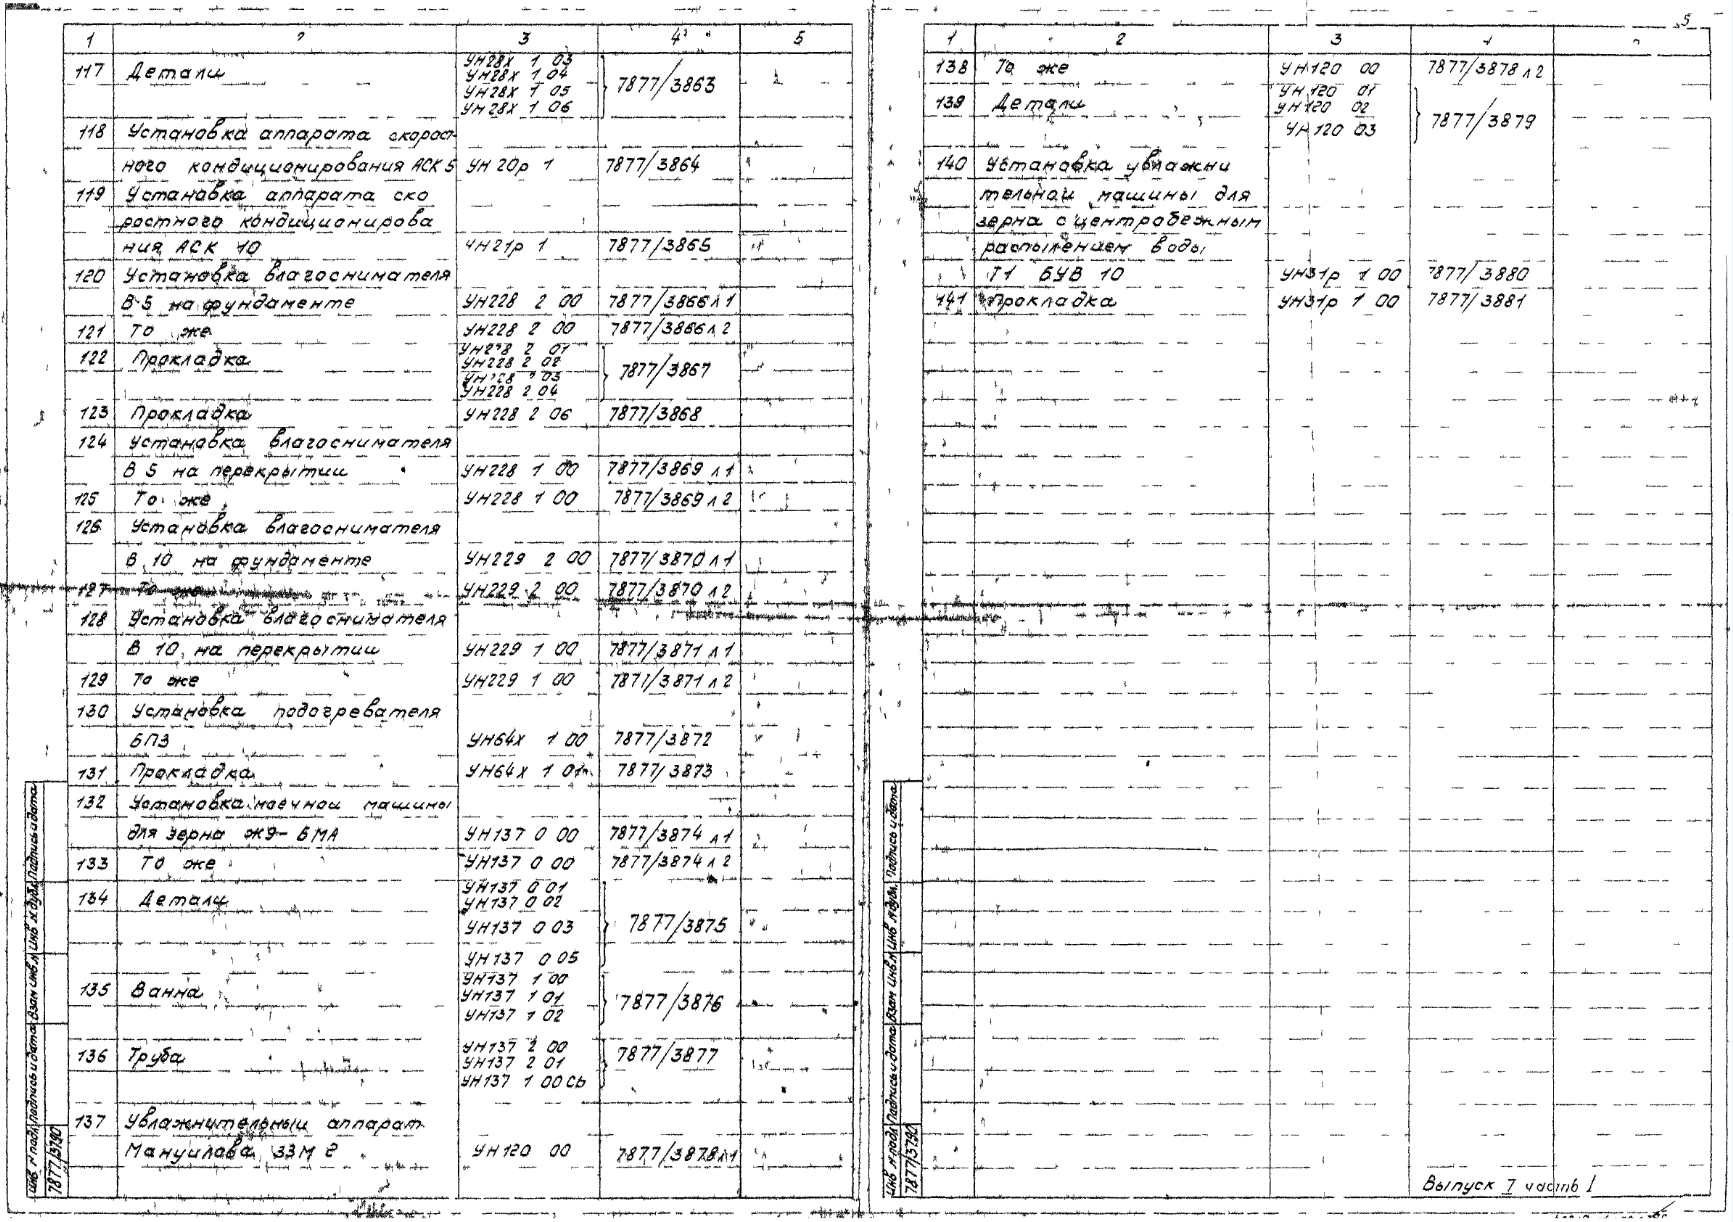 1 2 3 4 5
117 Детали УН28х 1 03
УН28х 1 04
УН28х 1 05
УН28х 1 06 7877/3863
118 Установка аппарата скорост-
ного кондиционирования АСК 5 УН 20р 1 7877/3864
119 Установка аппарата ско
ростного кондиционирова
ния АСК 10 УН21р 1 7877/3865
120 Установка влагоснимателя
В 5 на фундаменте УН228 2 00 7877/3866 л 1
121 То же УН228 2 00 7877/3866 л 2
122 Прокладка УН228 2 01
УН228 2 02
УН228 2 03
УН228 2 04 7877/3867
123 Прокладка УН228 2 06 7877/3868
124 Установка влагоснимателя
В 5 на перекрытии УН228 1 00 7877/3869 л 1
125 То же УН228 1 00 7877/3869 л 2
126 Установка влагоснимателя
В 10 на фундаменте УН229 2 00 7877/3870 л 1
127 То же УН229 2 00 7877/3870 л 2
128 Установка влагоснимателя
В 10 на перекрытии УН229 1 00 7877/3871 л 1
129 То же УН229 1 00 7877/3871 л 2
130 Установка подогревателя
БПЗ УН64х 1 00 7877/3872
131 Прокладка УН64х 1 01 7877/3873
132 Установка моечной машины
для зерна Ж9-БМА УН137 0 00 7877/3874 л 1
133 То же УН137 0 00 7877/3874 л 2
134 Детали УН137 0 01
УН137 0 02
УН137 0 03 7877/3875
УН137 0 05
135 Ванна УН137 1 00
УН137 1 01
УН137 1 02 7877/3876
136 Труба УН137 2 00
УН137 2 01
УН137 1 00 СЬ 7877/3877
137 Увлажнительный аппарат
Мануилова ЗЗМ 2 УН120 00 7877/3878 л 1
Инв. N подл. Подпись и дата Взам инв. N Инв. N дубл. Подпись и дата
7877/3790
5
1 2 3 4
138 То же УН120 00 7877/3878 л 2
139 Детали УН120 01
УН120 02
УН120 03 7877/3879
140 Установка увлажни
тельной машины для
зерна с центробежным
распылением воды
Т1 БУВ 10 УН31р 1 00 7877/3880
141 Прокладка УН31р 1 00 7877/3881
Инв. N подл. Подпись и дата Взам инв. N Инв. N дубл. Подпись и дата
7877/3790
Выпуск 7 часть 1